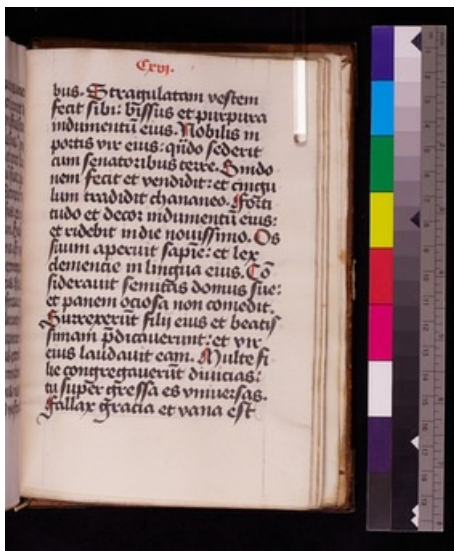 Cxvi.
bus. Stragulatam vestem
fecit sibi: bissus et purpura
indumentū eius. Nobilis in
portis vir eius: qn̄do sederit
cum senatoribus terre. Sindo
nem fecit et vendidit: et cingu
lum tradidit chananeo. Forti
tudo et decor indumentū eius:
et ridebit in die novissimo. Os
suum aperuit sapiē: et lex
clementie in lingua eius. Cō
siderauit semitas domus sue:
et panem ociosa non comedit.
Surrexerūt filij eius et beatis
simam p̄dicauerunt: et vir
eius laudauit eam. Multe fi
lie congregauerūt diuicias:
tu super gressa es vniuersas.
Fallax gracia et vana est